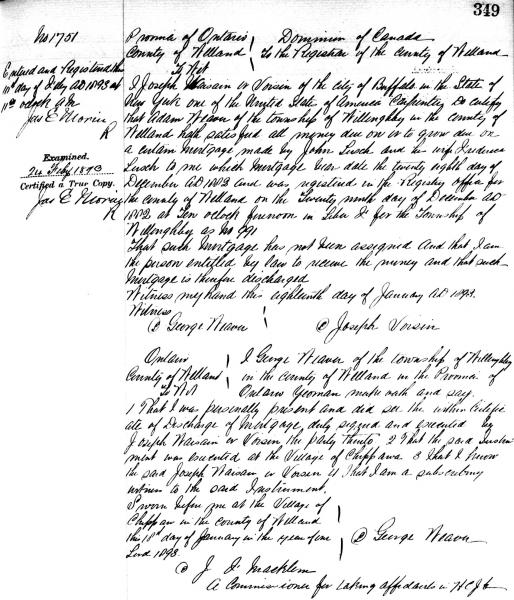 349
No 1751
Entered and Registered this
11th day of Feby AD 1893 at
11 oclock am
Jas E Morin
R
Examined.
24 Feby 1893
Certified a True Copy.
Jas E Morin
R
Province of Ontario } Dominion of Canada
County of Welland } To the Registrar of the County of Welland
To Wit
I Joseph Waisain or Voisin of the City of Buffalo in the State of
New York one of the United States of America Carpenter Do certify
that Adam Weaver of the township of Willoughby in the County of
Welland hath satisfied all money due on or to grow due on
a certain mortgage made by John Lusch and his wife
Lusch to me which mortgage bear date the twenty eighth day of
December AD 1882 and was registered in the Registry office for
the County of Welland on the Twenty ninth day of December AD
1882 at Ten oclock forenoon in Liber for the Township of
Willoughby as No 991
That such mortgage has not been assigned and that I am
the person entitled by law to receive the money and that such
Mortgage is therefore discharged
Witness my hand this eighteenth day of January AD 1893.
Witness
George Weaver } Joseph Voisin
Ontario } I George Weaver of the township of Willoughby
County of Welland } in the County of Welland in the Province of
To Wit Ontario Yeoman make oath and say.
1 That I was personally present and did see the within Certific
ate of Discharge of Mortgage duly signed and executed by
Joseph Waisain or Voisin the party thereto 2 That the said Instru
ment was executed at the Village of Chippawa 3 That I know
the said Joseph Waisain or Voisin 4 That I am a subscribing
witness to the said Instrument.
Sworn before me at the Village of
Chippawa in the County of Welland
this 18th day of January in the year of our
Lord 1893.
George Weaver
J F Macklem
A Commissioner for taking affidavits in H C J &c